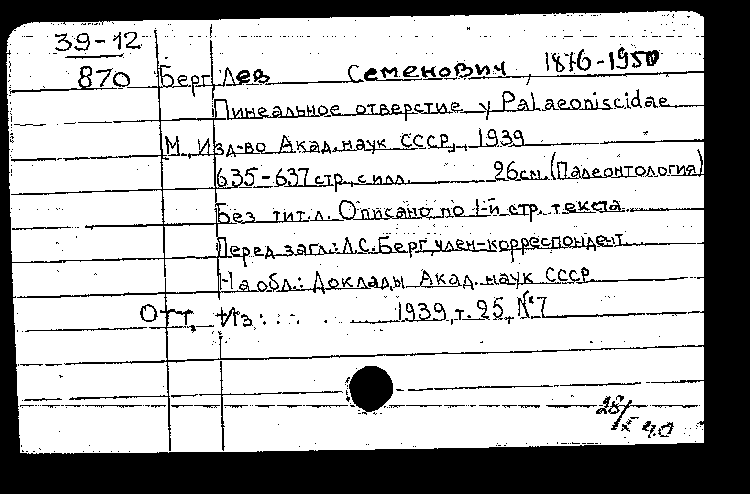 39-12
870 Берг, Лев Семенович, 1876-1950
Пинеальное отверстие у Palaeoniscidae
М., Изд-во Акад. наук СССР, 1939
635-637 стр., с илл. 26 см. (Палеонтология)
Без тит. л. Описано по 1-й стр. текста
Перед загл.: Л.С. Берг, член-корреспондент
На обл.: Доклады Акад. наук СССР
Отт. Из: 1939, т. 25, №7
28/
40